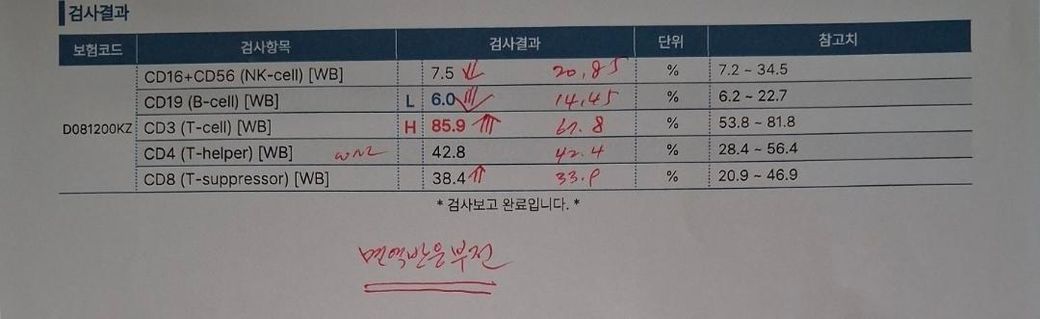 검사결과
보험코드 검사항목 검사결과 단위 참고치
CD16+CD56 (NK-cell) [WB] 7.5 ↓↓ 20.85 % 7.2 ~ 34.5
CD19 (B-cell) [WB] L 6.0 ↓↓↓ 14.45 % 6.2 ~ 22.7
D081200KZ CD3 (T-cell) [WB] H 85.9 ↑↑↑ 67.8 % 53.8 ~ 81.8
CD4 (T-helper) [WB] WNL 42.8 42.4 % 28.4 ~ 56.4
CD8 (T-suppressor) [WB] 38.4 ↑↑ 33.9 % 20.9 ~ 46.9
* 검사보고 완료입니다. *
면역반응부전